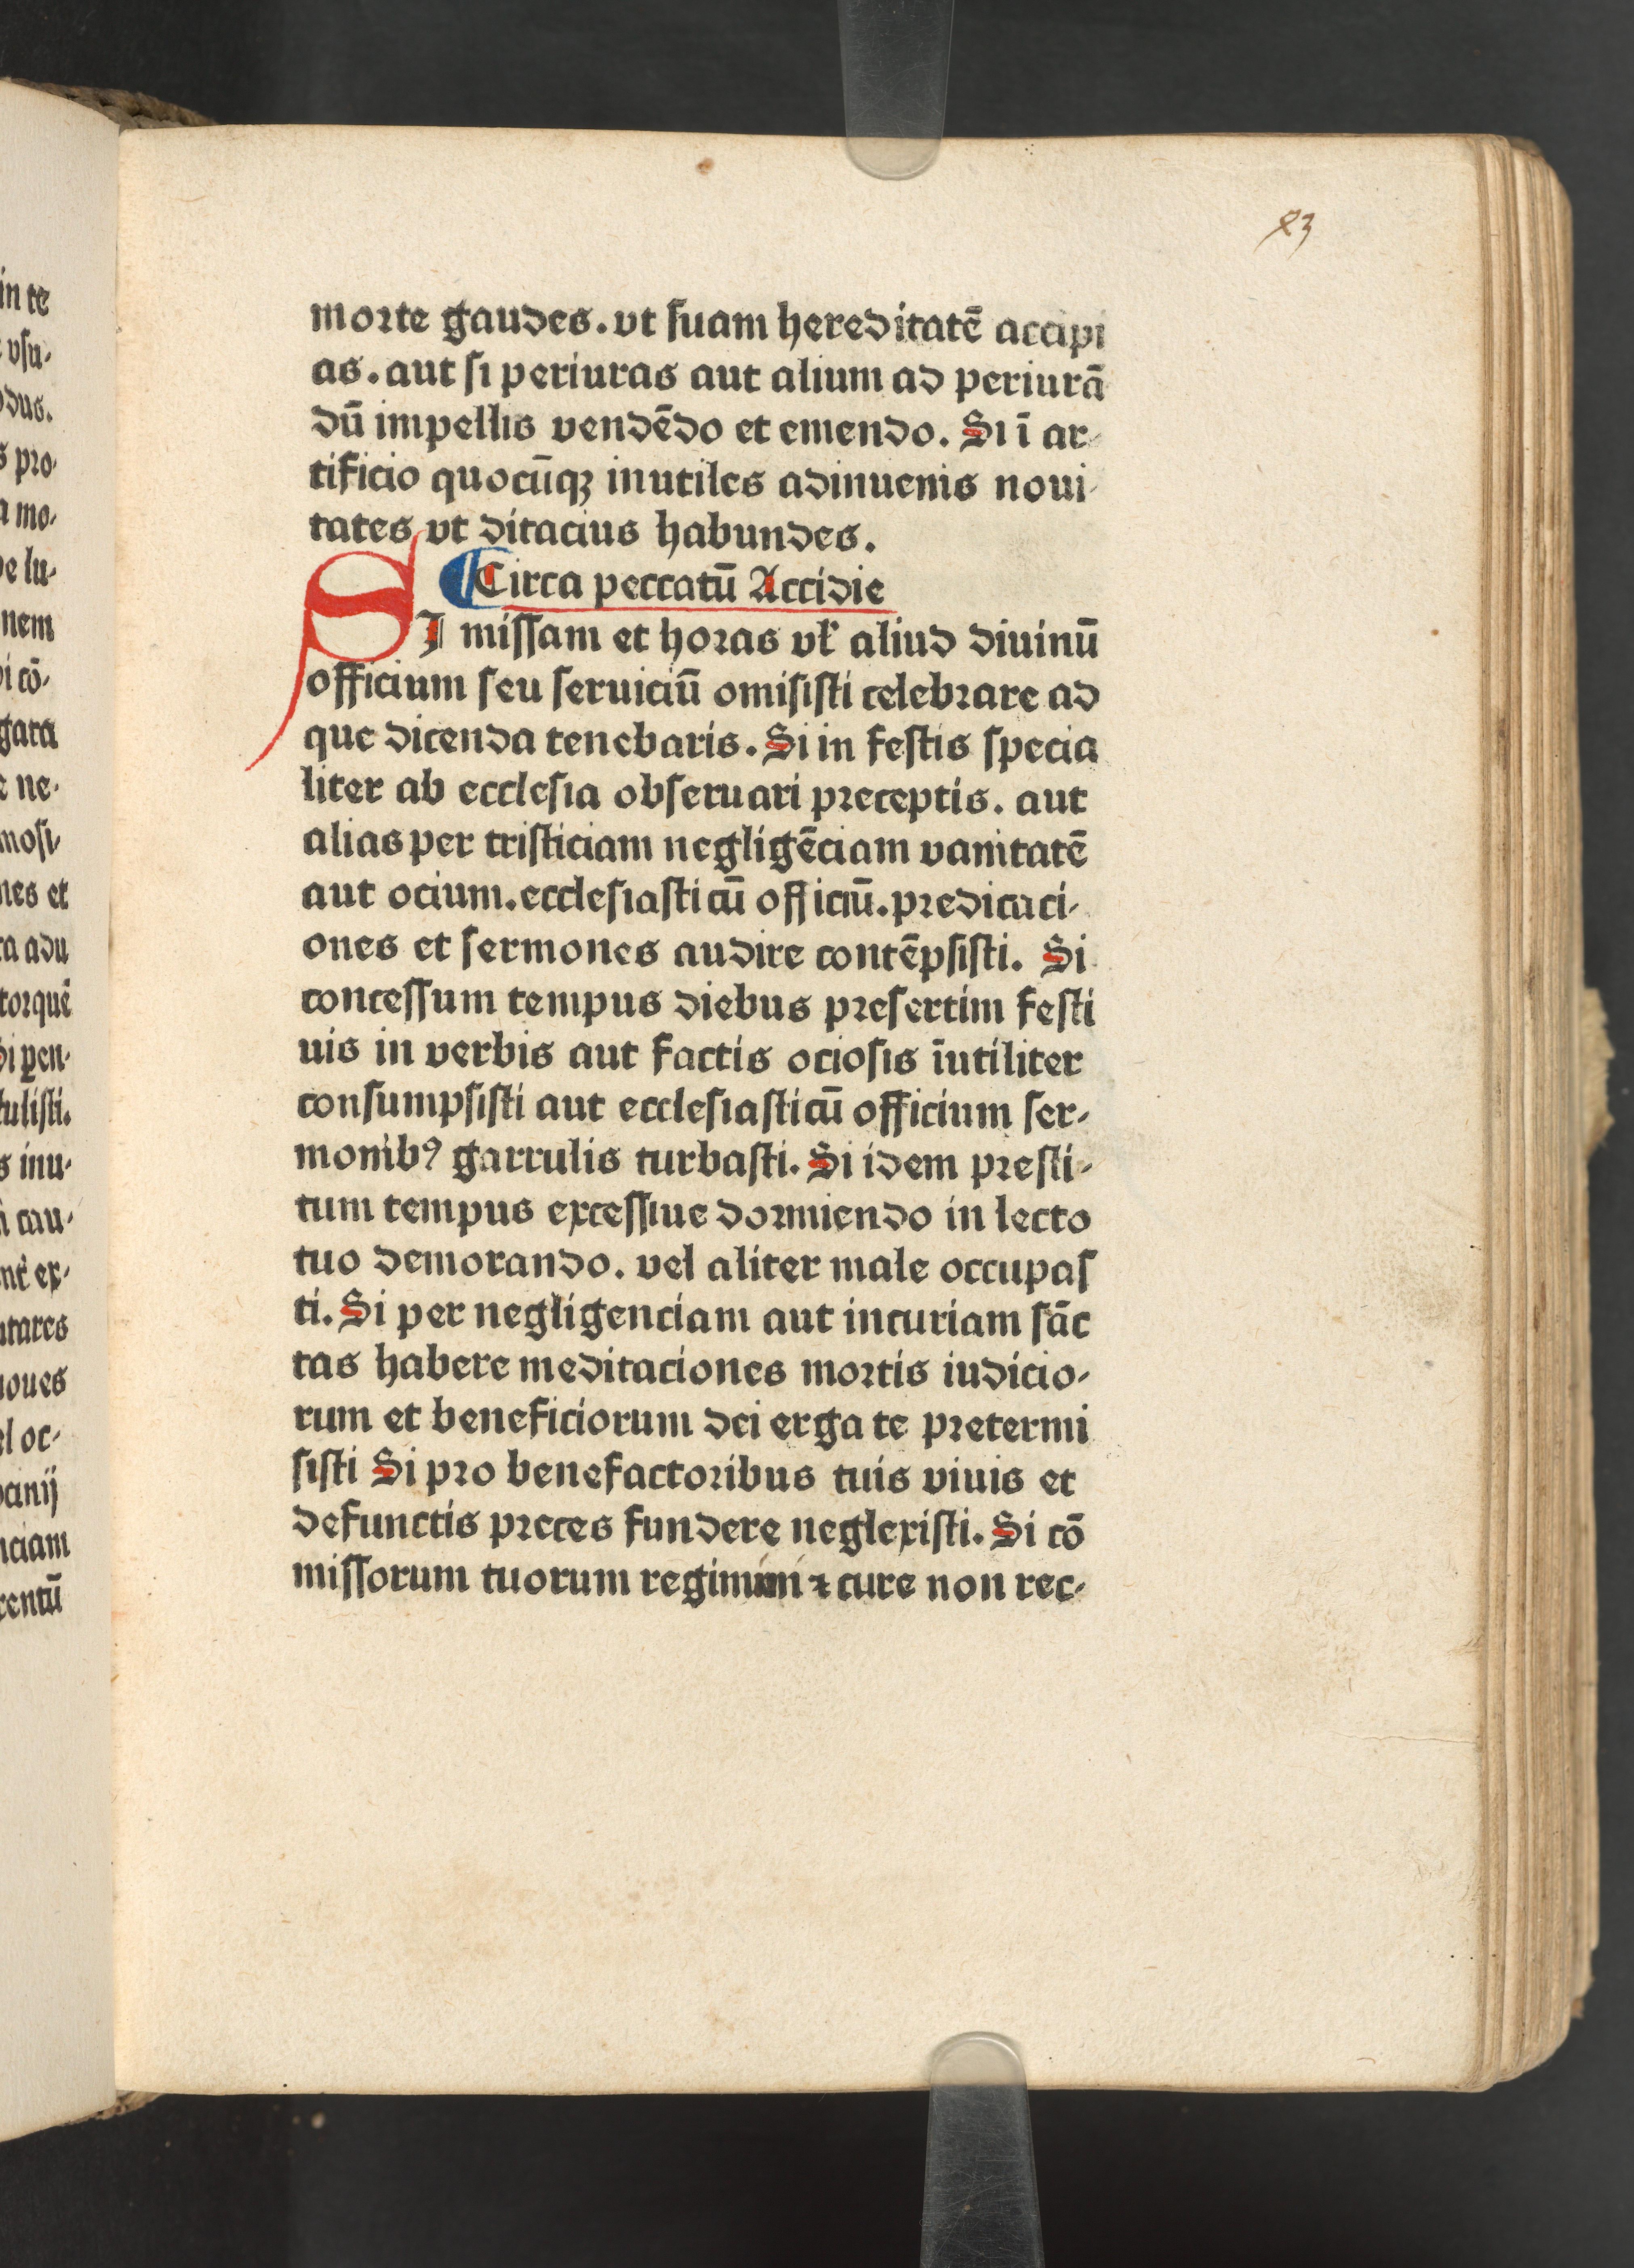 23
morte gaudes. vt suam hereditatē accipi
as. aut si periuras aut alium ad periurā
dū impellis vendēdo et emendo. Si ī ar-
tificio quocūqꝫ inutiles adinuenis noui-
tates vt ditacius habundes.
Circa peccatū Accidie
SI missam et horas vƚ aliud diuinū
officium seu seruiciū omisisti celebrare ad
que dicenda tenebaris. Si in festis specia
liter ab ecclesia obseruari preceptis. aut
alias per tristiciam negligēciam vanitatē
aut ocium. ecclesiasticū officiū. predicaci-
ones et sermones audire contēpsisti. Si
concessum tempus diebus presertim festi
uis in verbis aut factis ociosis īutiliter
consumpsisti aut ecclesiasticū officium ser-
monibꝰ garrulis turbasti. Si idem presti-
tum tempus excessiue dormiendo in lecto
tuo demorando. vel aliter male occupas
ti. Si per negligenciam aut incuriam sāc
tas habere meditaciones mortis iudicio-
rum et beneficiorum dei erga te pretermi
sisti Si pro benefactoribus tuis viuis et
defunctis preces fundere neglexisti. Si cō
missorum tuorum regimini ⁊ cure non rec-